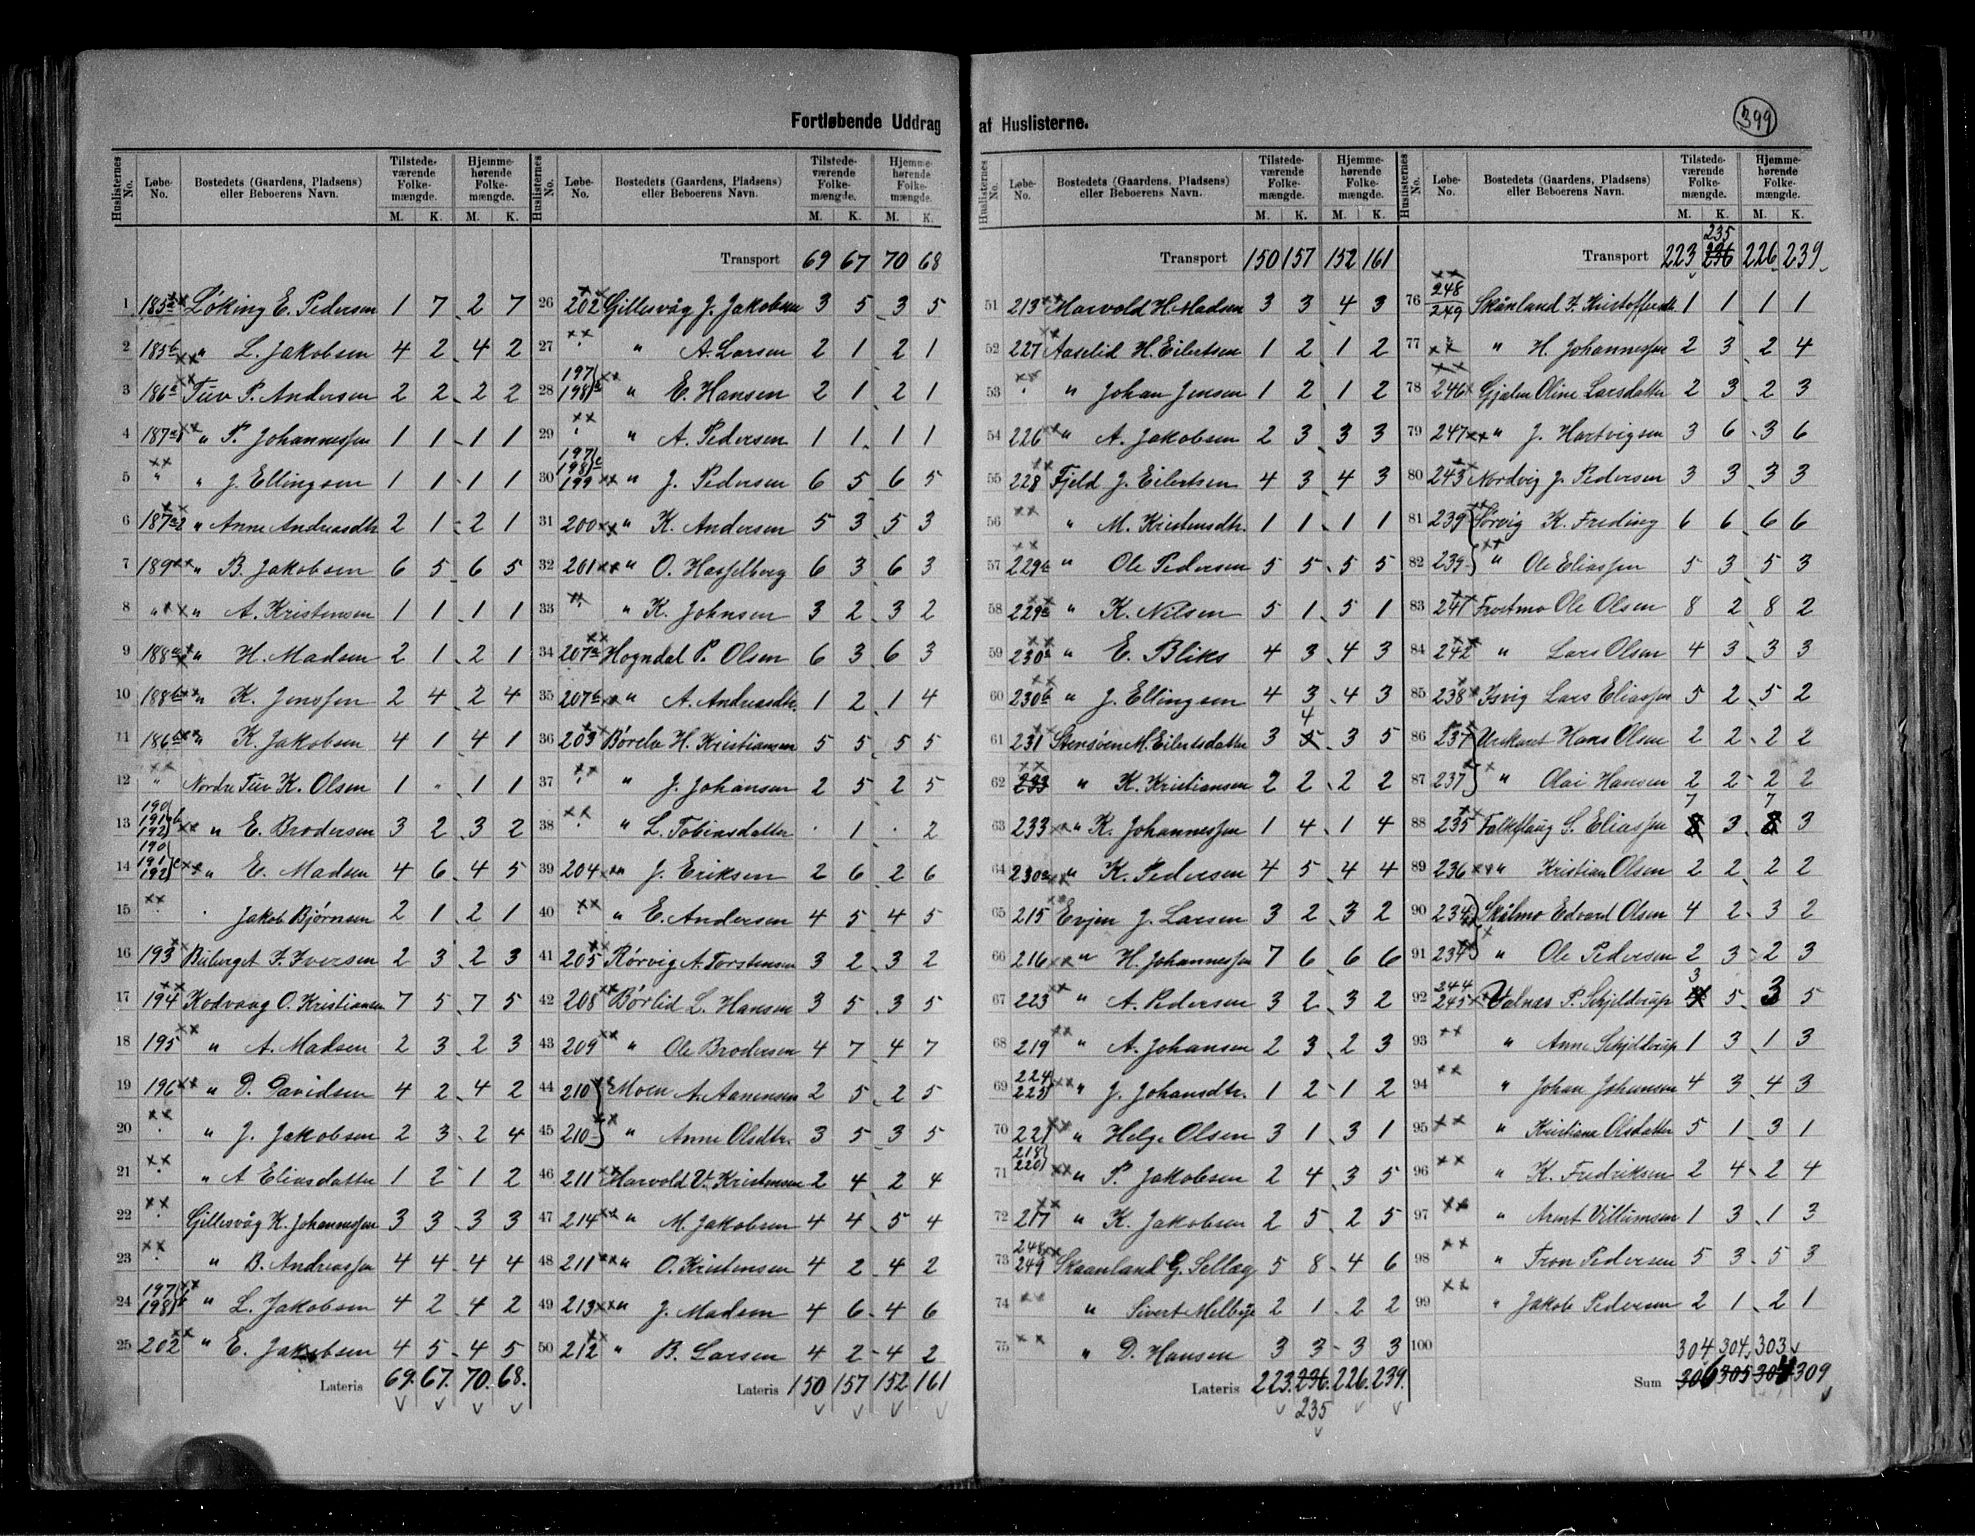 399
Fortløbende Uddrag af Huslisterne.
Huslisternes No. Løbe-No. Bostedets (Gaardens, Pladsens) eller Beboerens Navn. Tilstedeværende Folkemængde. M. K. Hjemmehørende Folkemængde. M. K.
1 185a Løking E. Pedersen 1 7 2 7
2 185b " L. Jakobsen 4 2 4 2
3 186a Tuv P. Andersen 2 2 2 2
4 187a " P. Johannessen 1 1 1 1
5 " " J. Ellingsen 1 1 1 1
6 187a2 " Anne Andreasdtr. 2 1 2 1
7 189 " B. Jakobsen 6 5 6 5
8 " " A. Kristensen 1 1 1 1
9 188a " H. Madsen 2 1 2 1
10 188b " K. Jenssen 2 4 2 4
11 186b " K. Jakobsen 4 1 4 1
12 " Nordre Tuv K. Olsen 1 " 1 1
13 190 191 192 b " E. Brodersen 3 2 3 2
14 190 191 192 c " E. Madsen 4 6 4 5
15 " Jakob Bjørnsen 2 1 2 1
16 193 Buberget F. Iversen 2 3 2 3
17 194 Kodvaag O. Kristiansen 7 5 7 5
18 195 " A. Madsen 2 3 2 3
19 196 " D. Davidsen 4 2 4 2
20 " J. Jakobsen 2 3 2 4
21 " A Eliasdatter 1 2 1 2
22 Gillesvåg K. Johannessen 3 3 3 3
23 " B. Andreassen 4 4 4 4
24 197 198 " L. Jakobsen 4 2 4 2
25 202 " E. Jakobsen 4 5 4 5
Lateris 69. 67. 70. 68.
Transport 69 67 70 68
26 202 Gillesvåg J. Jakobsen 3 5 3 5
27 " A. Larsen 2 1 2 1
28 197 198 a " E. Hansen 2 1 2 1
29 " A. Pedersen 1 1 1 1
30 197 198 199 c " J. Pedersen 6 5 6 5
31 200 " K. Andersen 5 3 5 3
32 201 " O. Hasselberg 6 3 6 3
33 " " K. Johnsen 3 2 3 2
34 207a Hogndal P. Olsen 6 3 6 3
35 207b " A. Andreasdtr. 1 2 1 4
36 203 Børelv H. Kristiansen 5 5 5 5
37 " J. Johansen 2 5 2 5
38 " L. Tobiasdatter . 1 . 2
39 204 " J. Eriksen 2 6 2 6
40 " E. Andersen 4 5 4 5
41 205 Rørvig A. Torstensen 3 2 3 2
42 208 Børlid L. Hansen 3 5 3 5
43 209 " Ole Brodersen 4 7 4 7
44 210 Moen A. Aanensen 2 5 2 5
45 210 " Anne Olsdtr. 3 5 3 5
46 211 Harvold V. Kristensen 2 4 2 4
47 214 " M. Jakobsen 4 4 5 4
48 211 " O. Kristensen 4 2 4 2
49 213 " J. Madsen 4 6 4 6
50 212 " B. Larsen 4 2 4 2
Lateris 150 157 152 161
Huslisternes No. Løbe-No. Bostedets (Gaardens, Pladsens) eller Beboerens Navn. Tilstedeværende Folkemængde. M. K. Hjemmehørende Folkemængde. M. K.
Transport 150 157 152 161
51 213 Harvold H. Madsen 3 3 4 3
52 227 Aaselid H. Eilertsen 1 2 1 2
53 " Johan Jensen 1 2 1 2
54 226 " A. Jakobsen 2 3 3 3
55 228 Fjeld J. Eilertsen 4 3 4 3
56 " M. Kristensdtr. 1 1 1 1
57 229b " Ole Pedersen 5 5 5 5
58 229a " K. Nilsen 5 1 5 1
59 230a " E. Bliks 4 3 4 3
60 230b " J. Ellingsen 4 3 4 3
61 231 Stensøen M. Eilertsdatter 3 4 5 3 5
62 233 " K. Kristiansen 2 2 2 2
63 233 " K. Johannessen 1 4 1 4
64 230a " K. Pedersen 4 5 4 4
65 215 Evjen J. Larsen 3 2 3 2
66 216 " H. Johannessen 7 6 6 6
67 223 " A. Pedersen 3 2 3 2
68 219 " A. Johansen 2 3 2 3
69 224 225 " J. Johansdtr. 1 2 1 2
70 221 " Helge Olsen 3 1 3 1
71 218 220 " P. Jakobsen 2 4 3 5
72 217 " K. Jakobsen 2 5 2 5
73 248 249 Skaanland G. Sellæg 5 8 4 6
74 " Sivert Melbye 2 1 2 2
75 " D. Hansen 3 3 3 3
Lateris 223. 236. 226. 239.
235
Transport 223 235 236 226 239
76 248 249 Skånland F. Kristofferdtr 1 1 1 1
77 " H. Johannessen 2 3 2 4
78 246 Gjælen Oline Larsdatter 2 3 2 3
79 247 " J. Hartvigsen 3 6 3 6
80 243 Nordvig J. Pedersen 3 3 3 3
81 239 Sørvig K. Freding 6 6 6 6
82 239 " Ole Eliassen 5 3 5 3
83 241 Frostmo Ole Olsen 8 2 8 2
84 242 " Lars Olsen 4 3 3 3
85 238 Isvig Lars Eliassen 5 2 5 2
86 237 Urskaret Hans Olsen 2 2 2 2
87 237 " Olai Hansen 2 2 2 2
88 235 Falkflaug S. Eliassen 7 8 3 7 8 3
89 236 " Kristian Olsen 2 2 2 2
90 234 Skålmo Edvard Olsen 4 2 3 2
91 234 " Ole Pedersen 2 3 2 3
92 244 245 Valnæs P. Schjelderup 3 4 5 3 5
93 " Anne Schjelderup 1 3 1 3
94 " Johan Johansen 4 3 4 3
95 " Kristiane Olsdatter 5 1 3 1
96 " K. Fredriksen 2 4 2 4
97 " Arent Villumsen 1 3 1 3
98 " Tron Pedersen 5 3 5 3
99 " Jakob Pedersen 2 1 2 1
100 304 304 303
Sum 306 305 304 309